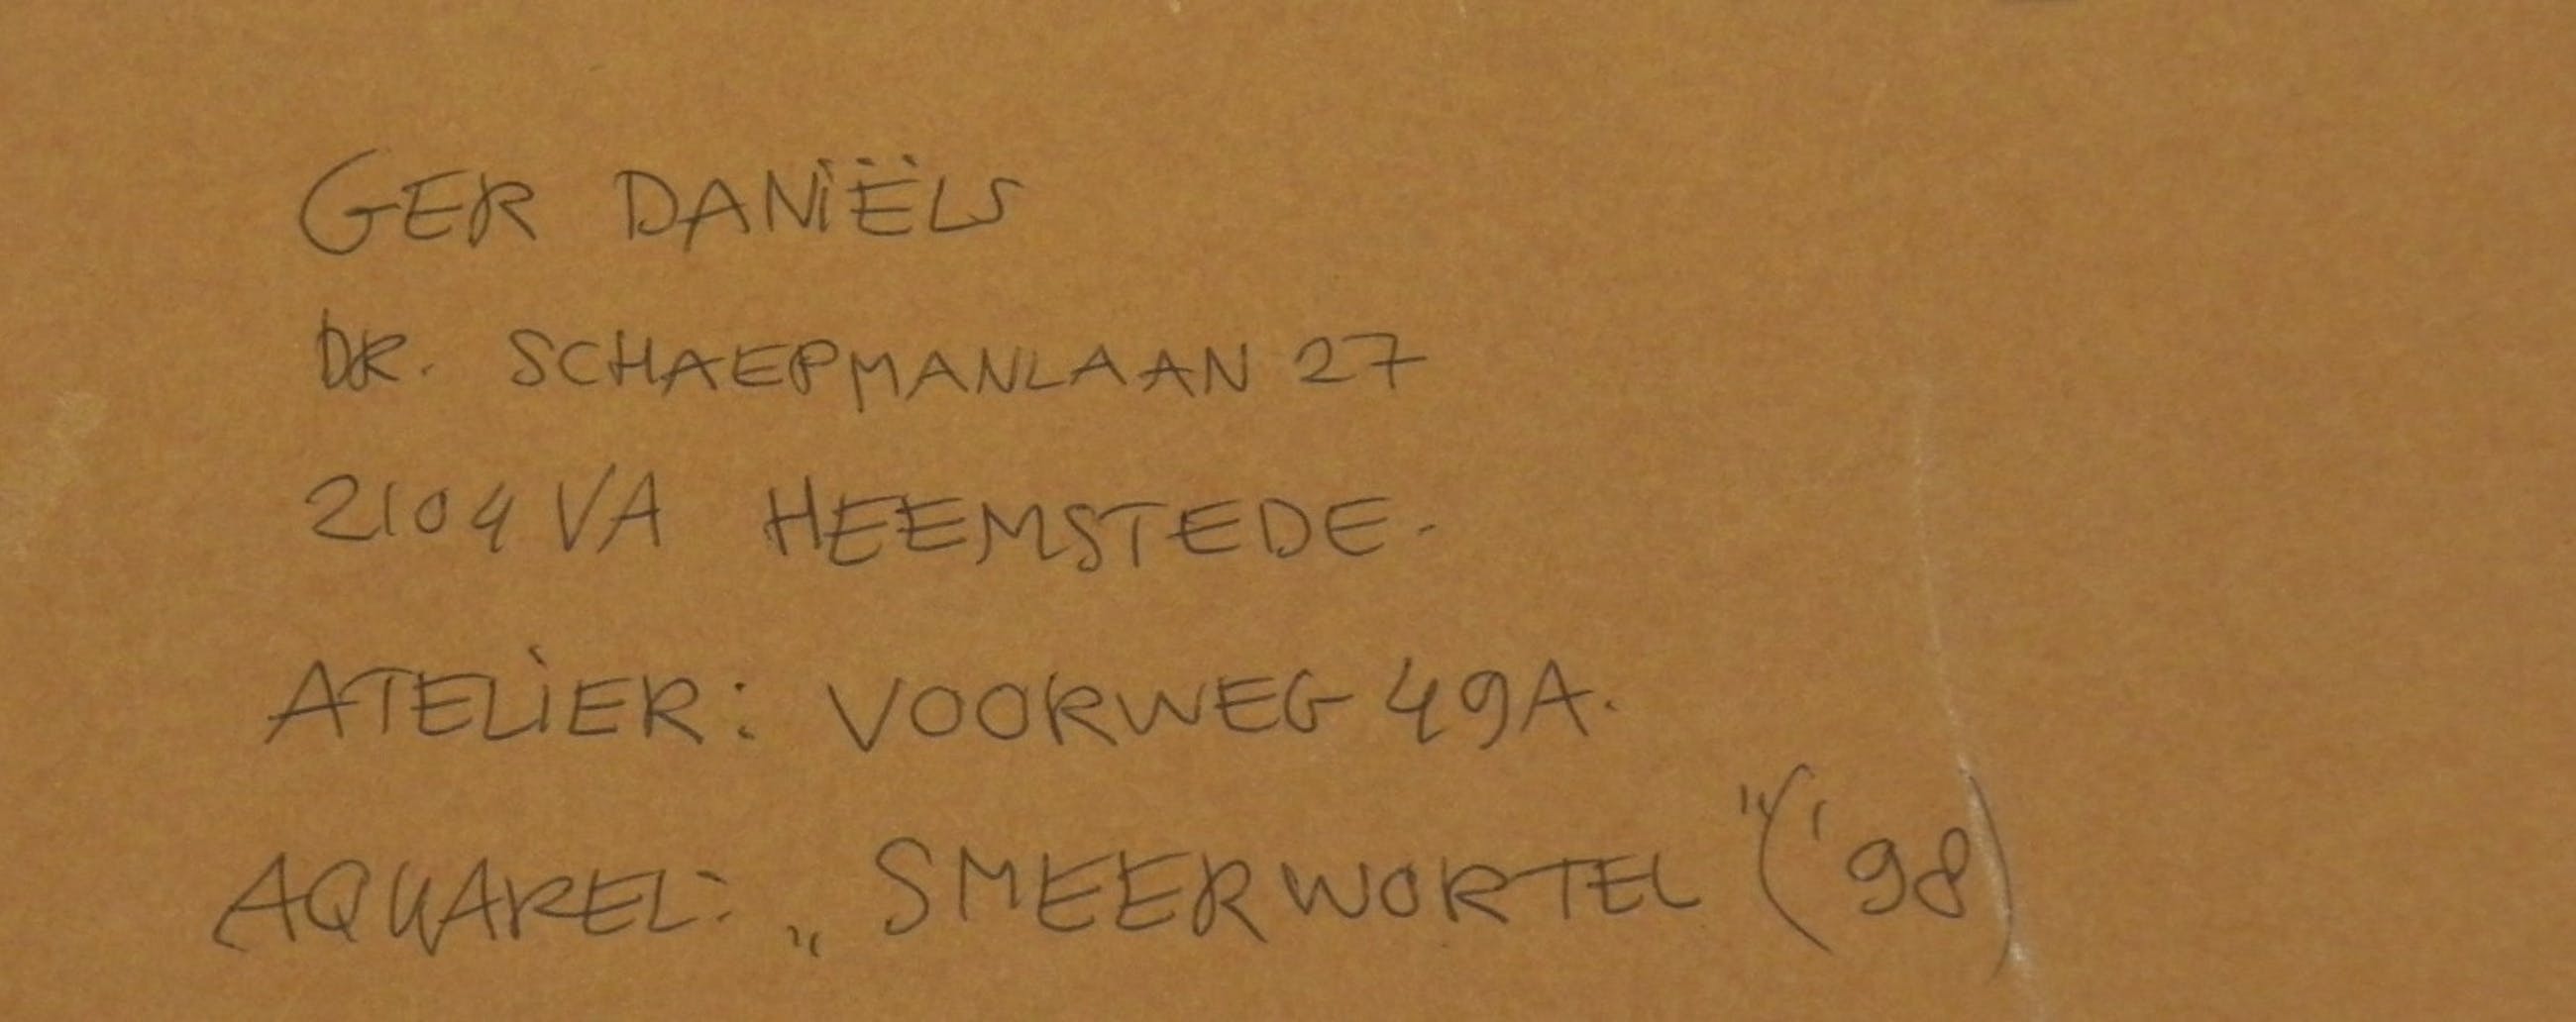 GER DANiËLS
DR. SCHAEPMANLAAN 27
2104 VA HEEMSTEDE.
ATELiER: VOORWEG 49A.
AQUAREL: „SMEERWORTEL" ('98)